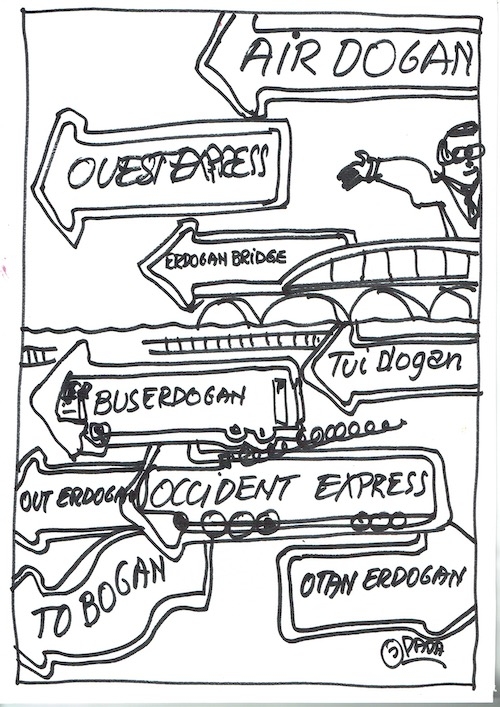 AIR DOGAN
OUEST EXPRESS
ERDOGAN BRIDGE
Tui dogan
BUS ERDOGAN
OUT ERDOGAN
OCCIDENT EXPRESS
TO BOGAN
OTAN ERDOGAN